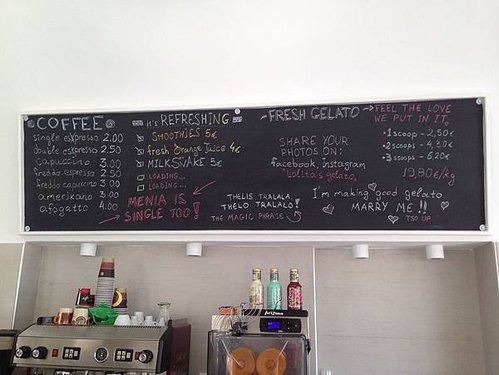 COFFEE
single espresso 2.00
double espresso 2.50
Capuccino 3.00
freddo espresso 2.50
freddo capuccino 3.00
americano 3.00
afogatto 4.00
it's REFRESHING
SMOOTHIES 5€
fresh Orange Juice 4€
MILKSHAKE 5€
LOADING...
LOADING...
MENIA IS
SINGLE TOO!
FRESH GELATO
FEEL THE LOVE
WE PUT IN IT.
SHARE YOUR
PHOTOS ON:
facebook, Instagram
"Lolita's gelato"
1 scoop - 2,50€
2 scoops - 4,30€
3 scoops - 6,20€
19,80€/kg
THELIS TRALALA,
THELO TRALALO!
THE MAGIC PHRASE
I'm making good gelato
MARRY ME!!
AriZona